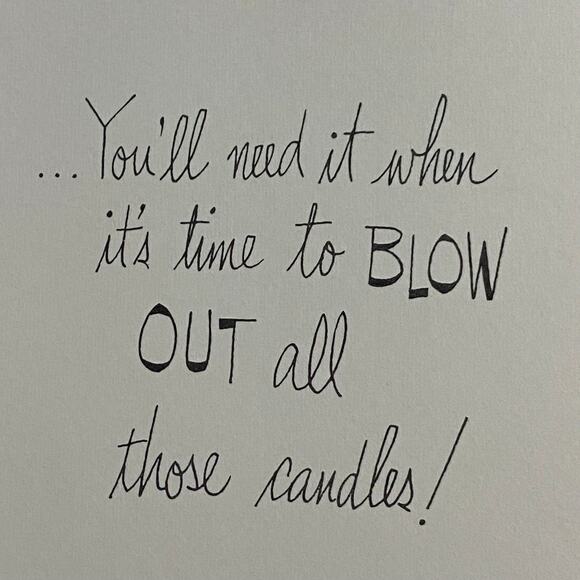 ...You'll need it when
it's time to BLOW
OUT all
those candles!